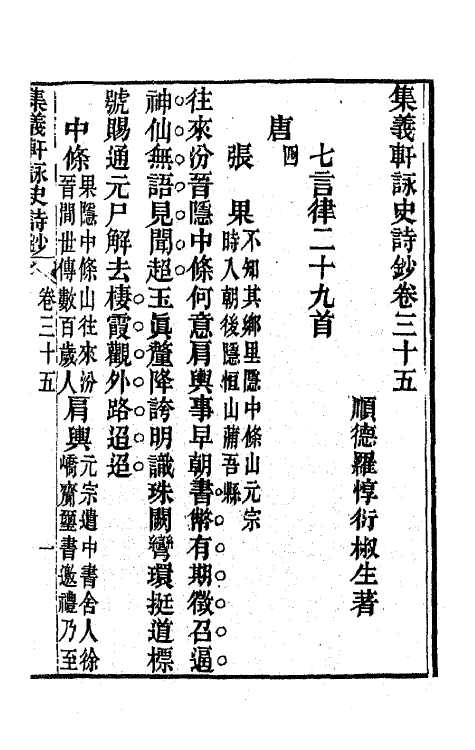 集義軒詠史詩鈔卷三十五
順德羅惇衍椒生著
七言律二十九首
唐四
張果不知其鄉里隱中條山元宗
時入朝後隱恒山蒲吾縣
往來汾晉隱中條何意肩輿事早朝書幣有期徵召逼
神仙無語見聞超玉眞釐降誇明識珠闕彎環挺道標
號賜通元尸解去棲霞觀外路迢迢
中條果隱中條山往來汾
晉間世傳數百歲人肩輿元宗遣中書舍人徐
嶠齎璽書邀禮乃至
集義軒詠史詩鈔
卷三十五
一